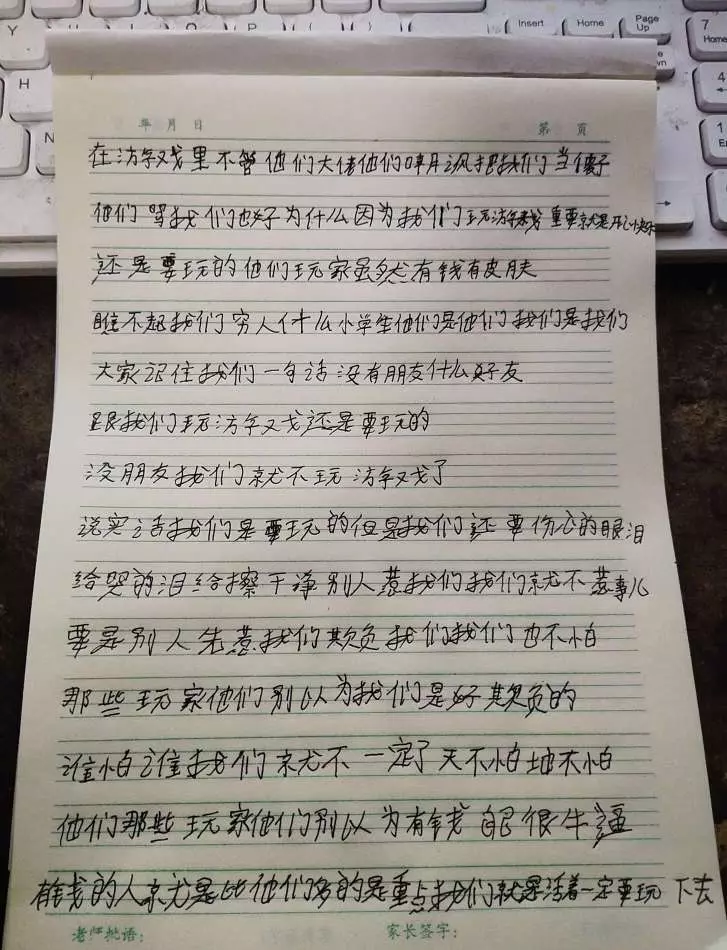 Insert Home Page Up
7 Home
年 月 日 第 页
在游戏里不管他们大佬他们嘲讽把我们当傻子
他们骂我们也好为什么因为我们玩游戏 重要就是开心快乐
还是要玩的他们玩家虽然有钱有皮肤
瞧不起我们穷人什么小学生他们是他们我们是我们
大家记住我们一句话没有朋友什么好友
跟我们玩游戏还是要玩的
没朋友我们就不玩游戏了
说实话我们是要玩的但是我们还要伤心的眼泪
给哭的泪给擦干净别人惹我们我们就不惹事儿
要是别人先惹我们欺负我们我们也不怕
那些玩家他们别以为我们是好欺负的
谁怕谁我们就不一定了天不怕地不怕
他们那些玩家他们别以为有钱 很牛逼
有钱的人就是比他们多的是重点我们就是活着一定要玩下去
老师批语: 家长签字: